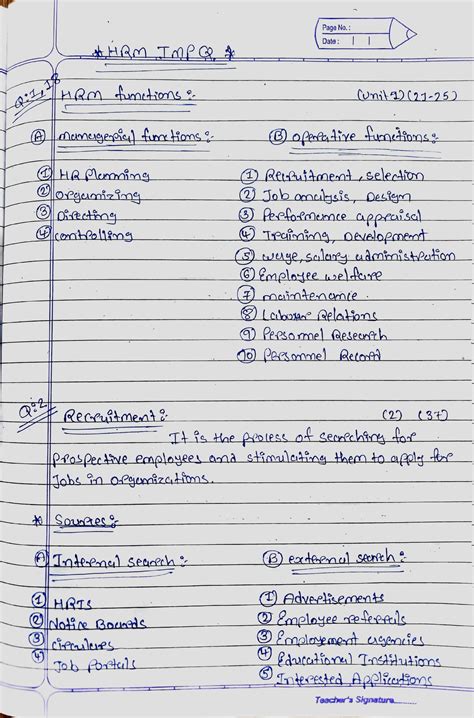 Page No.:
Date:
* HRM IMP Q. *
Q:1,18 HRM functions :- (Unit 1) (21-25)
(A) managerial functions :- (B) operative functions :-
(1) HR Planning (1) Recruitment, selection
(2) Organizing (2) Job analysis, Design
(3) Directing (3) Performance appraisal
(4) controlling (4) Training, Development
(5) wage, salary administration
(6) Employee welfare
(7) maintenance
(8) Labour Relations
(9) Personnel Research
(10) Personnel Record
Q:2 Recruitment :- (2) (37)
It is the process of searching for
Prospective employees and stimulating them to apply for
Jobs in organizations.
* Sources :-
(A) Internal search : (B) external search :
(1) HRIS (1) Advertisements
(2) Notice Boards (2) Employee referrals
(3) circulars (3) Employement agencies
(4) Job Portals (4) Educational Institutions
(5) Interested Applications
Teacher's Signature........